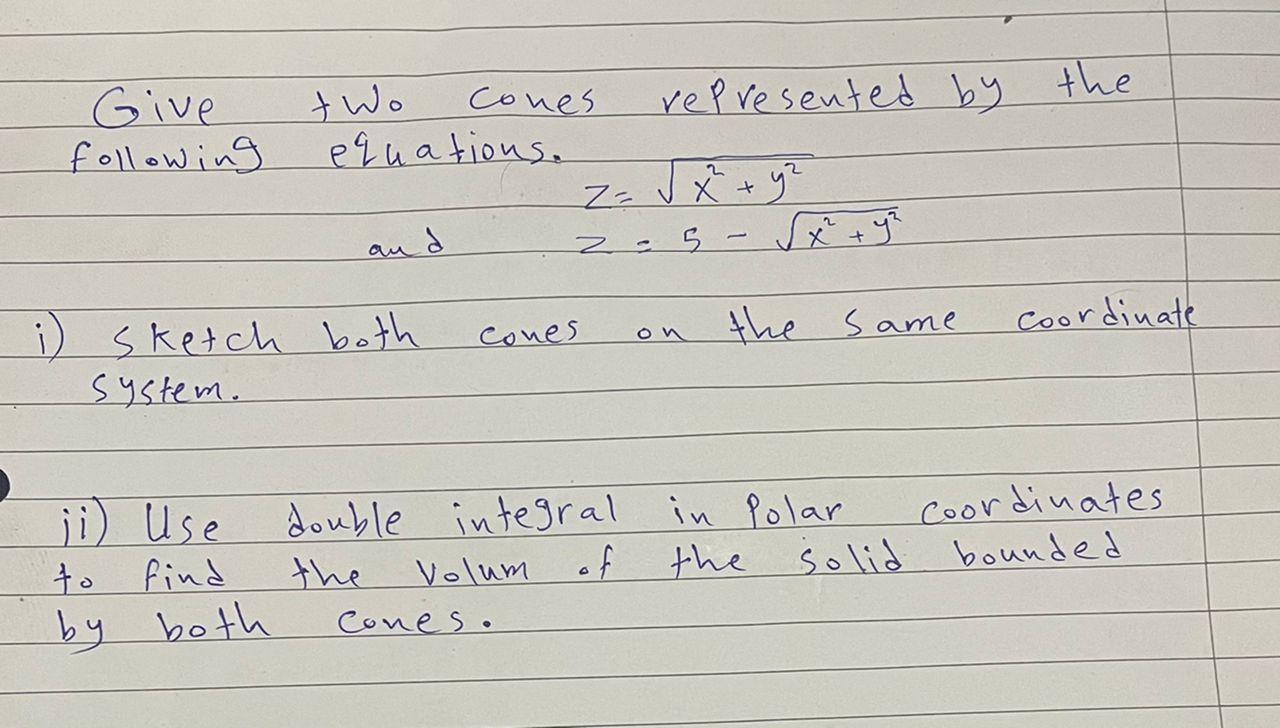 Give two cones represented by the
following equations.
z = √x² + y²
and z = 5 - √x² + y²
i) sketch both cones on the same coordinate
system.
ii) Use double integral in Polar coordinates
to find the Volum of the solid bounded
by both cones.